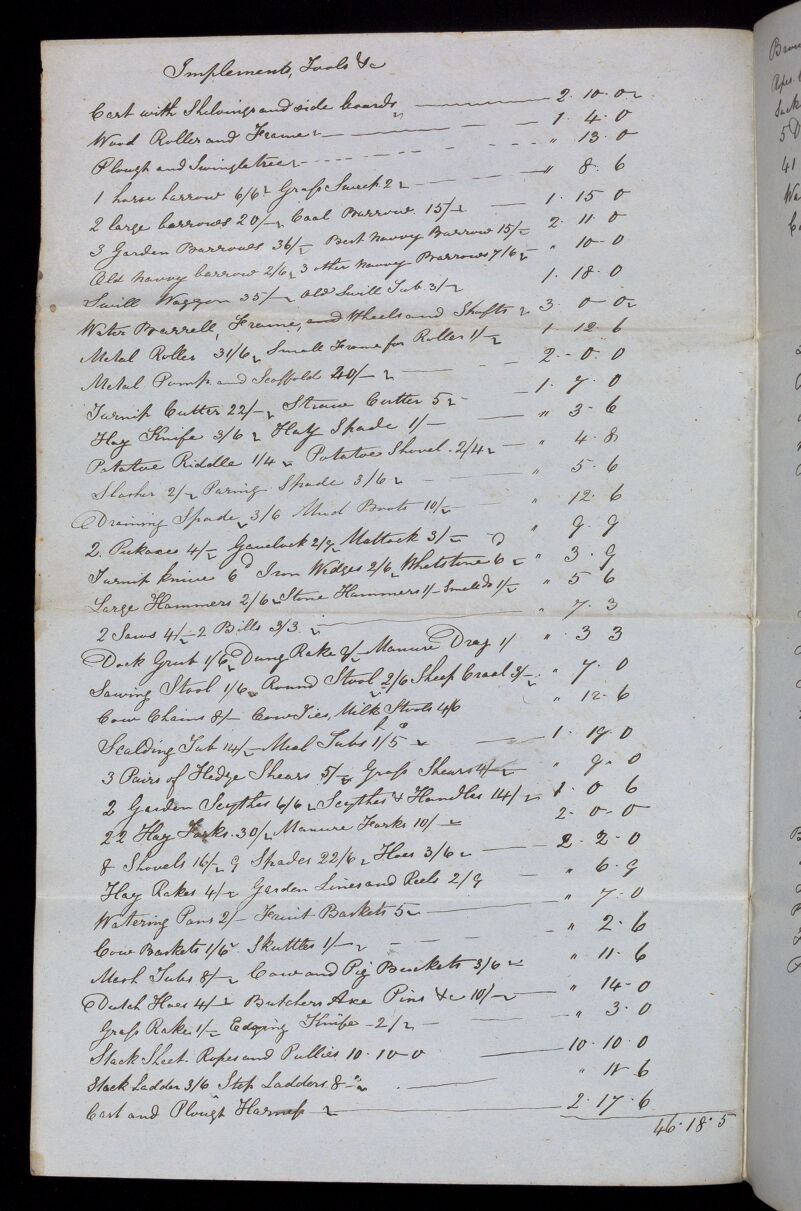 Implements, Tools &c
Cart with Shelvings and side boards 2. 10. 0
Wood Roller and Frame 1. 4. 0
Plough and Swingletree " 13. 0
1 horse harrow 6/6 Grass Sweep 2 " 8. 6
2 large barrows 20/- Coal Barrow 15/- 1. 15 0
3 Garden Barrows 36/- Best Navvy Barrow 15/- 2. 11 0
Old Navvy barrow 2/6 3 other Navvy Barrows 7/6 " 10- 0
Swill Waggon 35/- Old Swill Tub 3/- 1. 18. 0
Water Barrell, Frame, and Wheels and Shafts 3. 0 0
Metal Roller 31/6 Small Frame for Roller 1/- 1 12. 6
Metal Pump and Scaffold 40/- 2. - 0. 0
Turnip Cutter 22/- Straw Cutter 5 1. 7. 0
Hay Knife 3/6 Hay Spade 1/- " 3- 6
Potatoe Riddle 1/4 Potatoe Shovel 2/4 " 4. 8
Slasher 2/- Paring Spade 3/6 " 5. 6
Draining Spade 3/6 Mud Boots 10/- " 12. 6
2. Pickaxes 4/- Gavelock 2/9 Mattock 3/- " 9. 9
Turnip knive 6d Iron Wedges 2/6 Whetstone 6d " 3. 9
Large Hammers 2/6 Stone Hammers 1/- Small Do 1/- " 5 6
2 Saws 4/- 2 Bills 3/3 " 7. 3
Dock Grub 1/6 Dung Rake 9/- Manure Drag 1/ " 3 3
Sawing Stool 1/6 Round Stool 2/6 Sheep Craal 3/- " 7. 0
Cow Chains 8/- Cow Ties, Milk Stools 4/6 " 12. 6
Scalding Tub 14/- Meal Tubs £1/5 1. 19. 0
3 Pairs of Hedge Shears 5/- Grass Shears 4/- " 9. 0
2 Garden Scythes 6/6 Scythes & Handles 14/- 1. 0 6
22 Hay Forks 30/- Manure Forks 10/- 2. 0- 0
8 Shovels 16/- 9 Spades 22/6 Hoes 3/6 2. 2- 0
Hay Rakes 4/- Garden Lines and Reels 2/9 " 6. 9
Watering Pans 2/- Fruit Baskets 5 " 7. 0
Cow Baskets 1/6 Skuttles 1/- " 2. 6
Mesh Tubs 8/- Cow and Pig Buckets 3/6 " 11. 6
Dutch Hoes 4/- Butchers Axe Pins &c 10/- " 14- 0
Grass Rake 1/- Edging Knife 2/- " 3. 0
Stack Sheet Ropes and Pullies 10. 10- 0 10. 10. 0
Stack Ladder 3/6 Step Ladders 8 " 11- 6
Cart and Plough Harness 2. 17. 6
46. 18. 5